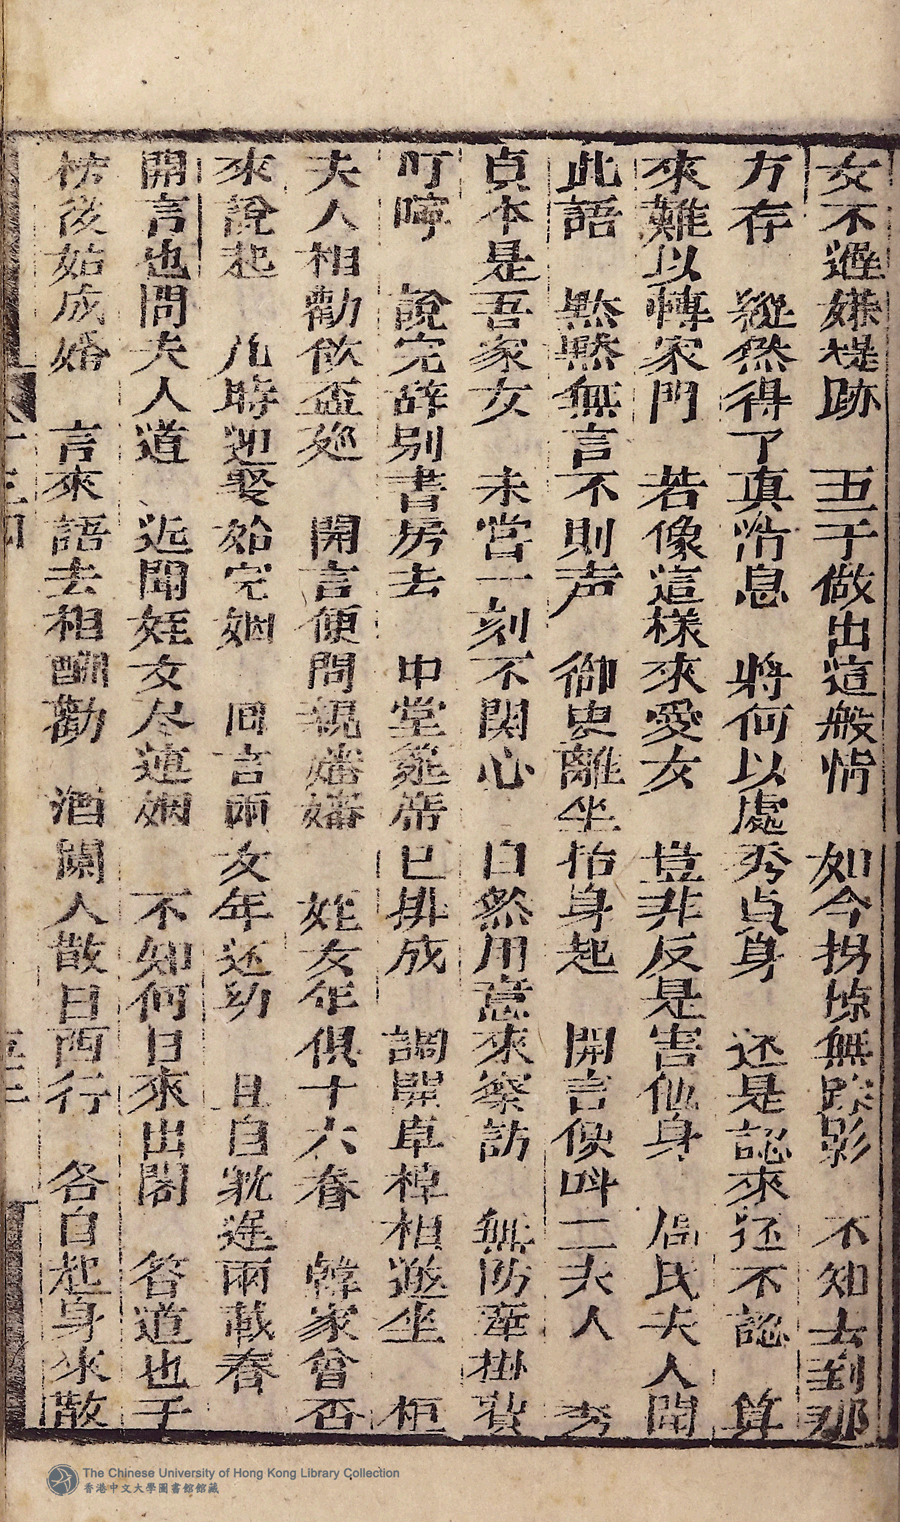 女不過嫌堤跡　五于做出這般情　如今拐㨆無踪影　不知去到那
方存　縱然得了真消息　將何以處秀貞身　还是認來还不認　算
來難以轉家門　若像這樣來愛女　豈非反是害他身　周氏夫人聞
此語　黙黙無言不則声　御史離坐抬身起　開言便呌二夫人　秀
貞本是吾家女　未嘗一刻不関心　自然用意來察訪　無防牽掛費
叮嚀　說完辞别書房去　中堂筵席已排成　調開卓椅相遜坐　柜
夫人相勸飲盃廵　開言便問親嬸嬸　姪女年俱十六春　韓家曾否
來說起　几時迎娶始完姻　囬言兩女年还幼　且自躭遲兩載春
開言也問夫人道　近聞姪女尽連姻　不知何日來出閣　答道也于
榜後始成婚　言來語去相酬勸　酒闌人散日西行　各自起身來散
The Chinese University of Hong Kong Library Collection
香港中文大學圖書館館藏